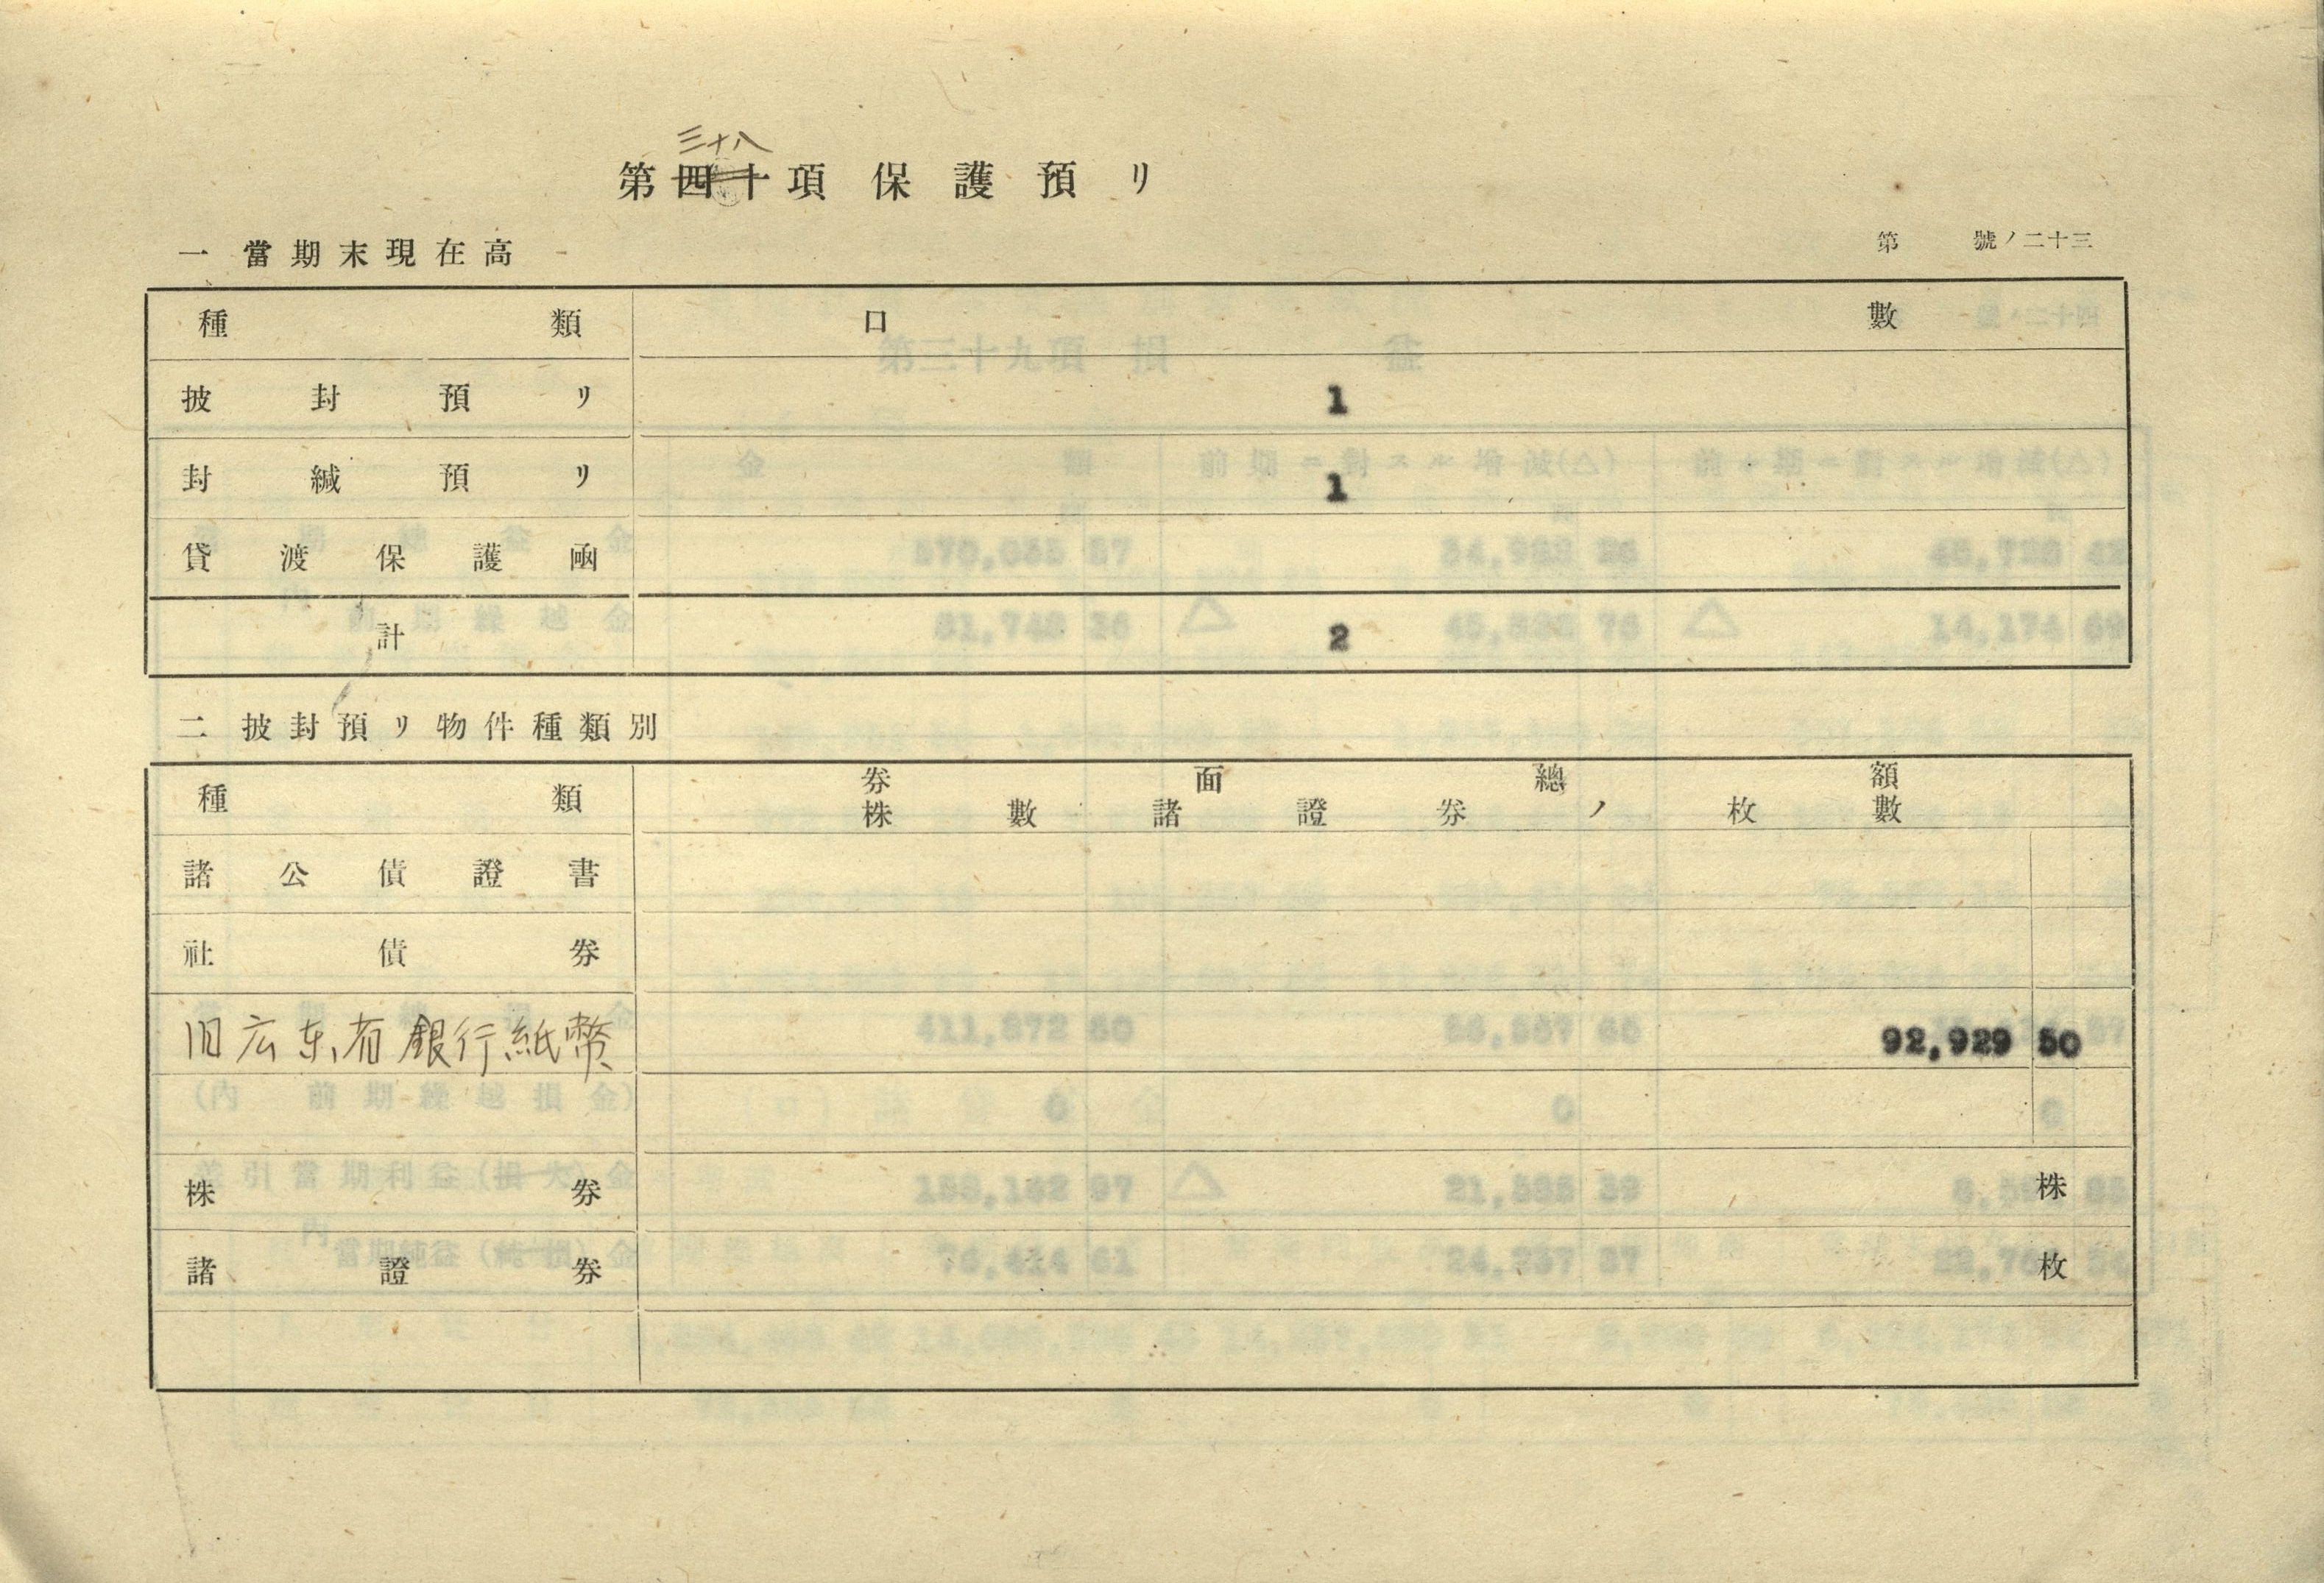 三十八
第四十項 保護預リ
一 當期末現在高
第 號ノ二十三
種類 口數
披封預リ 1
封緘預リ 1
貸渡保護凾
計 2
二 披封預リ物件種類別
種類 券面總額
株數諸證券ノ枚數
諸公債證書
社債券
旧広东省銀行紙幣 92,929 50
株券 株
諸證券 枚